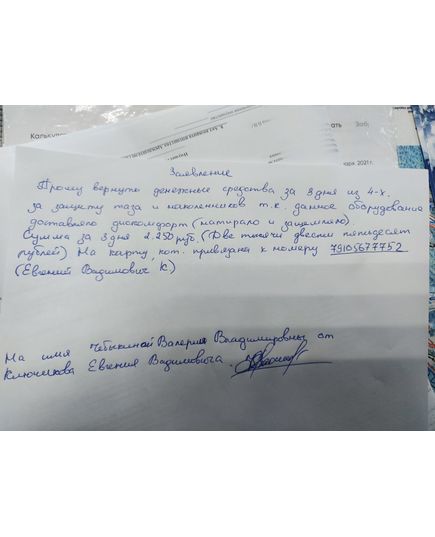 Калькул
ать Заб
аря 2021 г.
Заявление
Прошу вернуть денежные средства за 3 дня из 4-х.
за защиту таза и наколенников т.к. данное оборудование
доставляло дискомфорт (натирало и защемляло)
Сумма за 3 дня 2.250 руб. (Две тысячи двести пятьдесят
рублей) На карту, кот. привязана к номеру 79105677752
(Евгений Вадимович К)
На имя Чебыкиной Валерии Владимировны от
Ключикова Евгения Вадимовича.